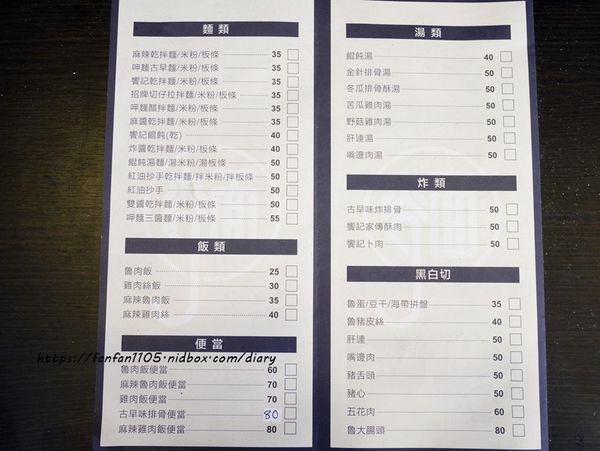 麵類
麻辣乾拌麵/米粉/板條 35
呷麵古早麵/米粉/板條 35
饗記乾拌麵/米粉/板條 35
招牌切仔拉拌麵/米粉/板條 35
呷麵醋拌麵/米粉/板條 35
麻醬乾拌麵/米粉/板條 35
饗記餛飩(乾) 40
炸醬乾拌麵/米粉/板條 40
餛飩湯麵/湯米粉/湯板條 50
紅油抄手乾拌麵/拌米粉/拌板條 50
紅油抄手 50
雙醬乾拌麵/米粉/板條 50
呷麵三醬麵/米粉/板條 55
飯類
魯肉飯 25
雞肉絲飯 30
麻辣魯肉飯 35
麻辣雞肉絲 40
便當
魯肉飯便當 60
麻辣魯肉飯便當 70
雞肉飯便當 70
古早味排骨便當 80
麻辣雞肉飯便當 80
湯類
餛飩湯 40
金針排骨湯 50
冬瓜排骨酥湯 50
苦瓜雞肉湯 50
野菇雞肉湯 50
肝連湯 50
嘴邊肉湯 50
炸類
古早味炸排骨 50
饗記家傳酥肉 50
饗記卜肉 50
黑白切
魯蛋/豆干/海帶拼盤 35
魯豬皮絲 40
肝連 50
嘴邊肉 50
豬舌頭 50
豬心 50
五花肉 60
魯大腸頭 80
https://fanfan1105.nidbox.com/diary